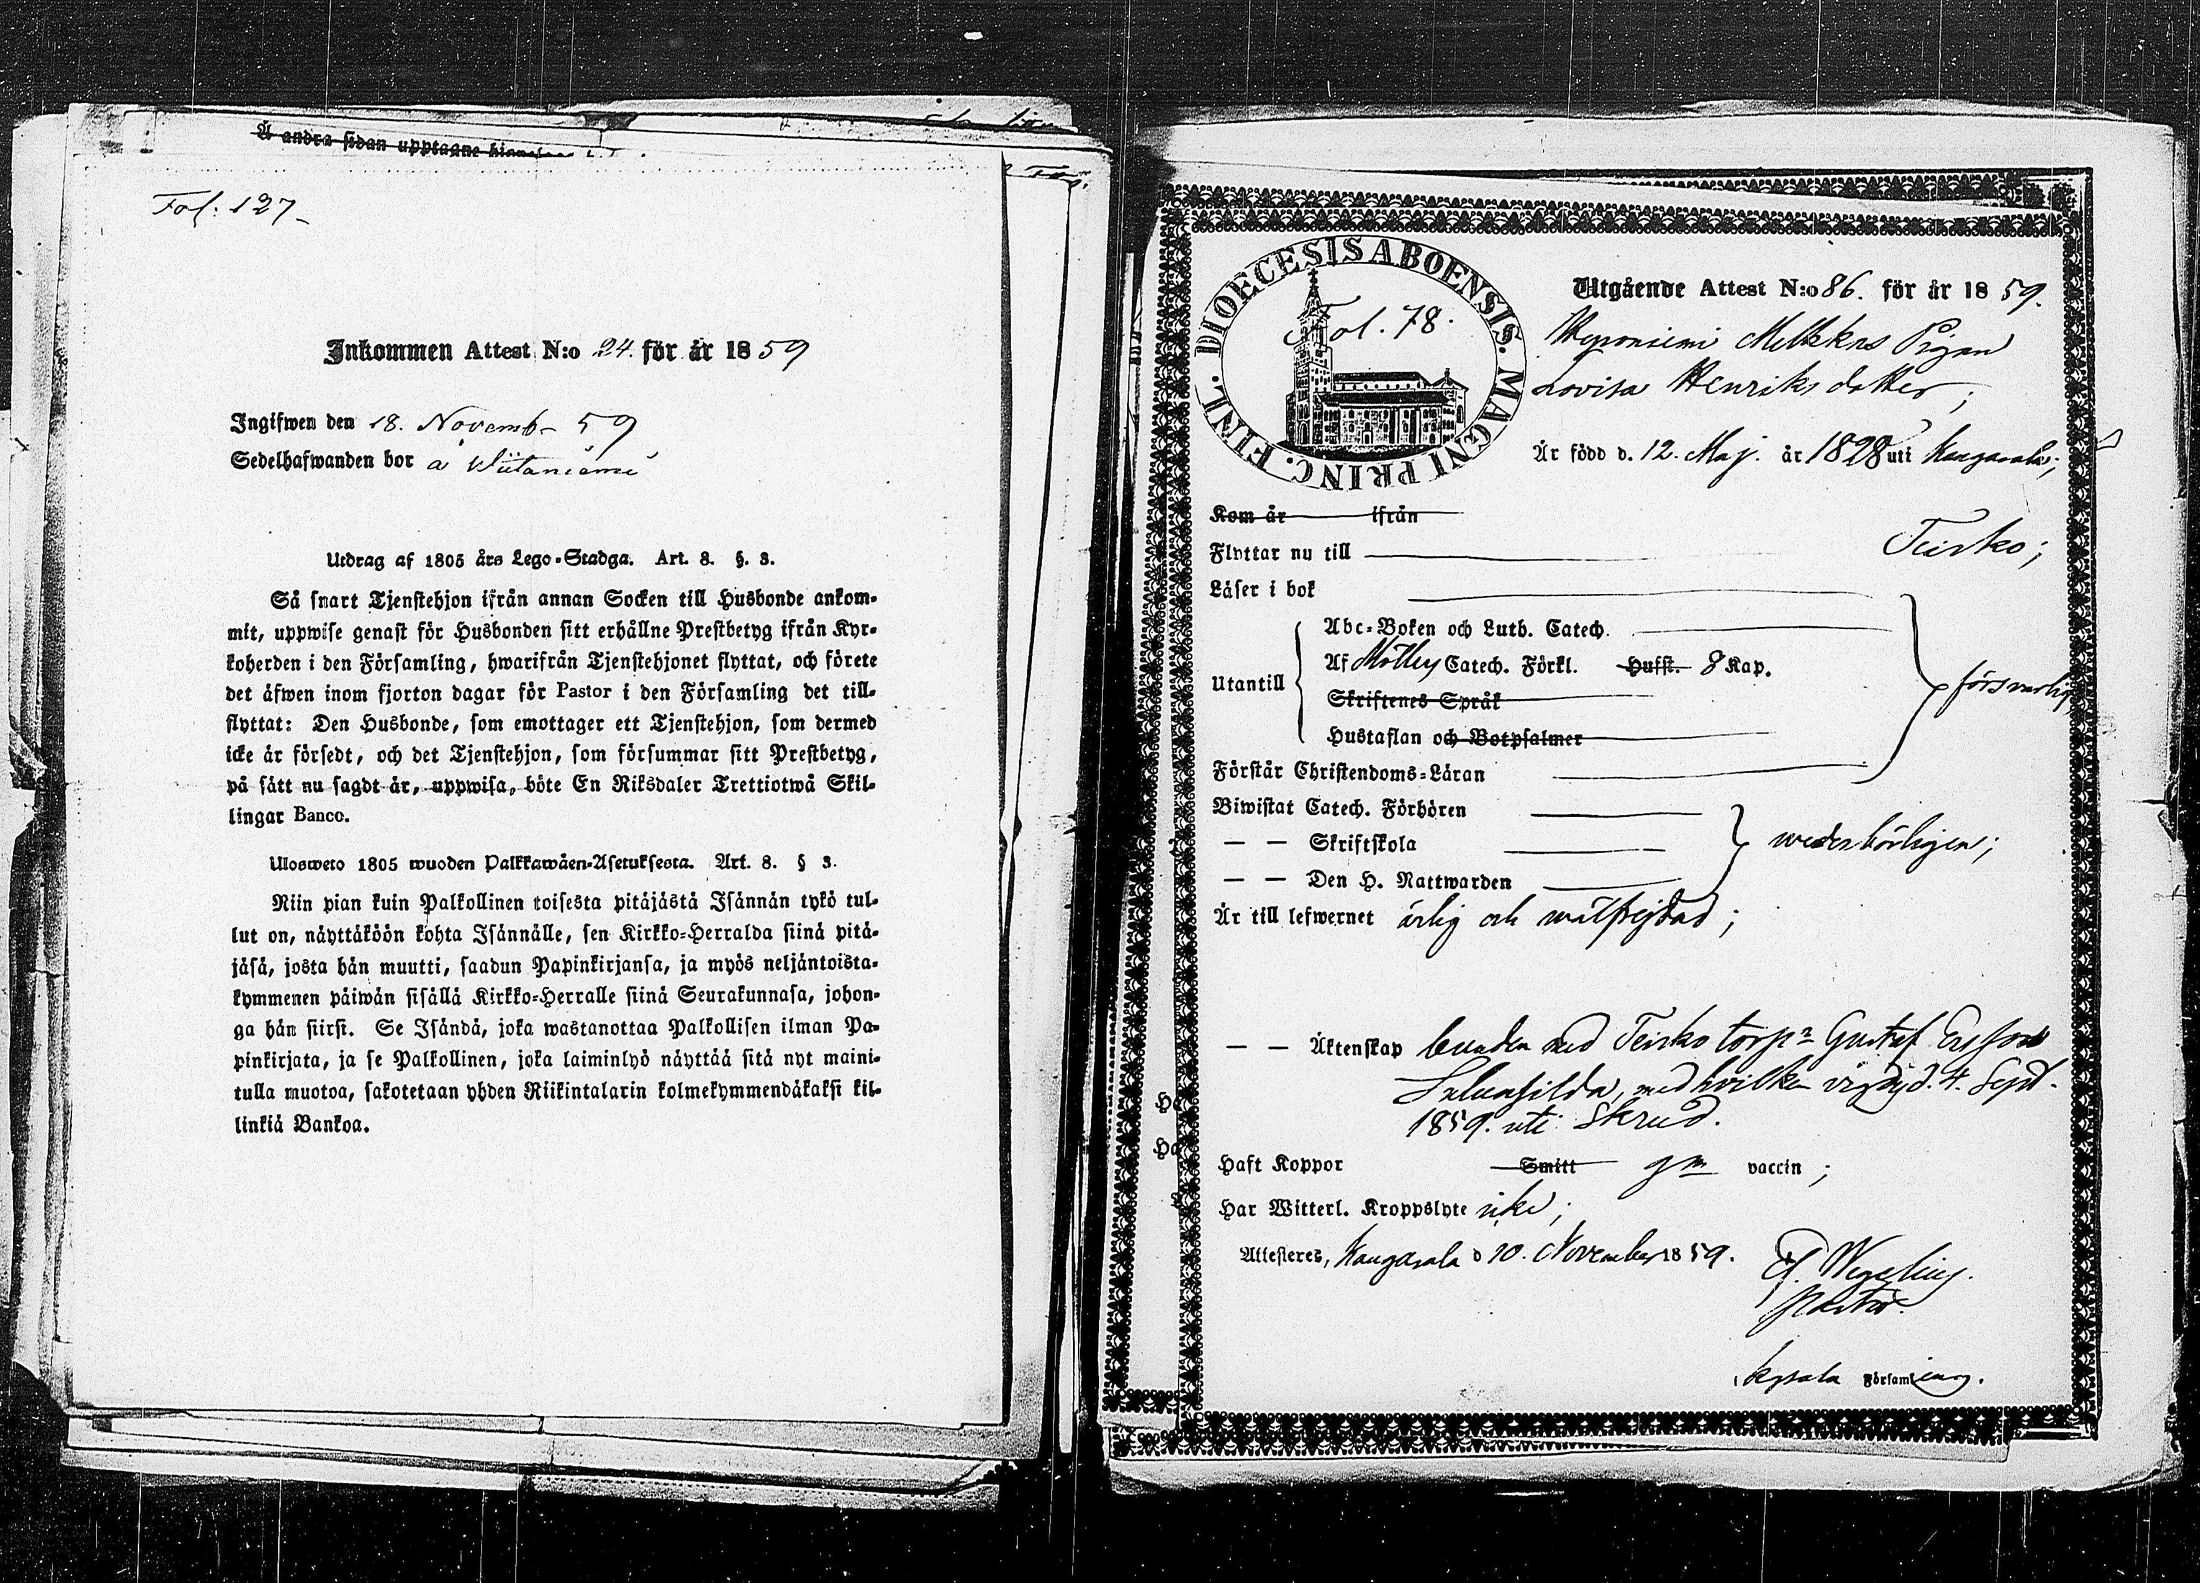 Å andra sidan upptagne
Fol. 127
Inkommen Attest N:o 24. för år 1859
Ingifwen den 18. Novemb. 59
Sedelhafwanden bor å Wiitaniemi
Utdrag af 1805 års Lego-Stadga. Art. 8. §. 3.
Så snart Tjenstehjon ifrån annan Socken till Husbonde ankom-
mit, uppwise genast för Husbonden sitt erhållne Prestbetyg ifrån Kyr-
koherden i den Församling, hwarifrån Tjenstehjonet flyttat, och förete
det äfwen inom fjorton dagar för Pastor i den Församling det till-
flyttat: Den Husbonde, som emottager ett Tjenstehjon, som dermed
icke är försedt, och det Tjenstehjon, som försummar sitt Prestbetyg,
på sätt nu sagdt är, uppwisa, böte En Riksdaler Trettiotwå Skil-
lingar Banco.
Ulosweto 1805 wuoden Palkkawäen-Asetuksesta. Art. 8. § 3.
Niin pian kuin Palkollinen toisesta pitäjästä Isännän tykö tul-
lut on, näyttäköön kohta Isännälle, sen Kirkko-Herralda siinä pitä-
jäsä, josta hän muutti, saadun Papinkirjansa, ja myös neljäntoista-
kymmenen päiwän sisällä Kirkko-Herralle siinä Seurakunnasa, johon-
ga hän siirsi. Se Isändä, joka wastanottaa Palkollisen ilman Pa-
pinkirjata, ja se Palkollinen, joka laiminlyö näyttää sitä nyt maini-
tulla muotoa, sakotetaan yhden Riikintalarin kolmekymmendäkaksi kil-
linkiä Bankoa.
DIOECESIS ABOENSIS. MAGNI PRINC. FINL.
Fol. 78.
Utgående Attest N:o 86. för år 1859.
Heponiemi Pigan
Lovisa Henriks dotter;
Är född d. 12. Maj. år 1828 uti Kangasala;
Kom år ifrån
Flyttar nu till Teisko;
Läser i bok
Abc-Boken och Luth. Catech.
Utantill Af Catech. Förkl. Husst. 8 Kap.
Skriftenes Språk
Hustaflan och Botpsalmer
försvarlig
Förstår Christendoms-Läran
Biwistat Catech. Förhören
— — Skriftskola wederbörligen;
— — Den H. Nattwarden
Är till lefwernet ärlig och wälfrejdad;
— — Äktenskap bunden med Teisko torp:n Gustaf Ersson
med hvilken vigd d. 4. Sept.
1859. uti
Haft Koppor Smitt gm vaccin;
Har Witterl. Kroppslyte icke;
Attesteres, Kangasala d 10. November 1859.
Wegelius.
Pastor.
i Kgsala Församling.